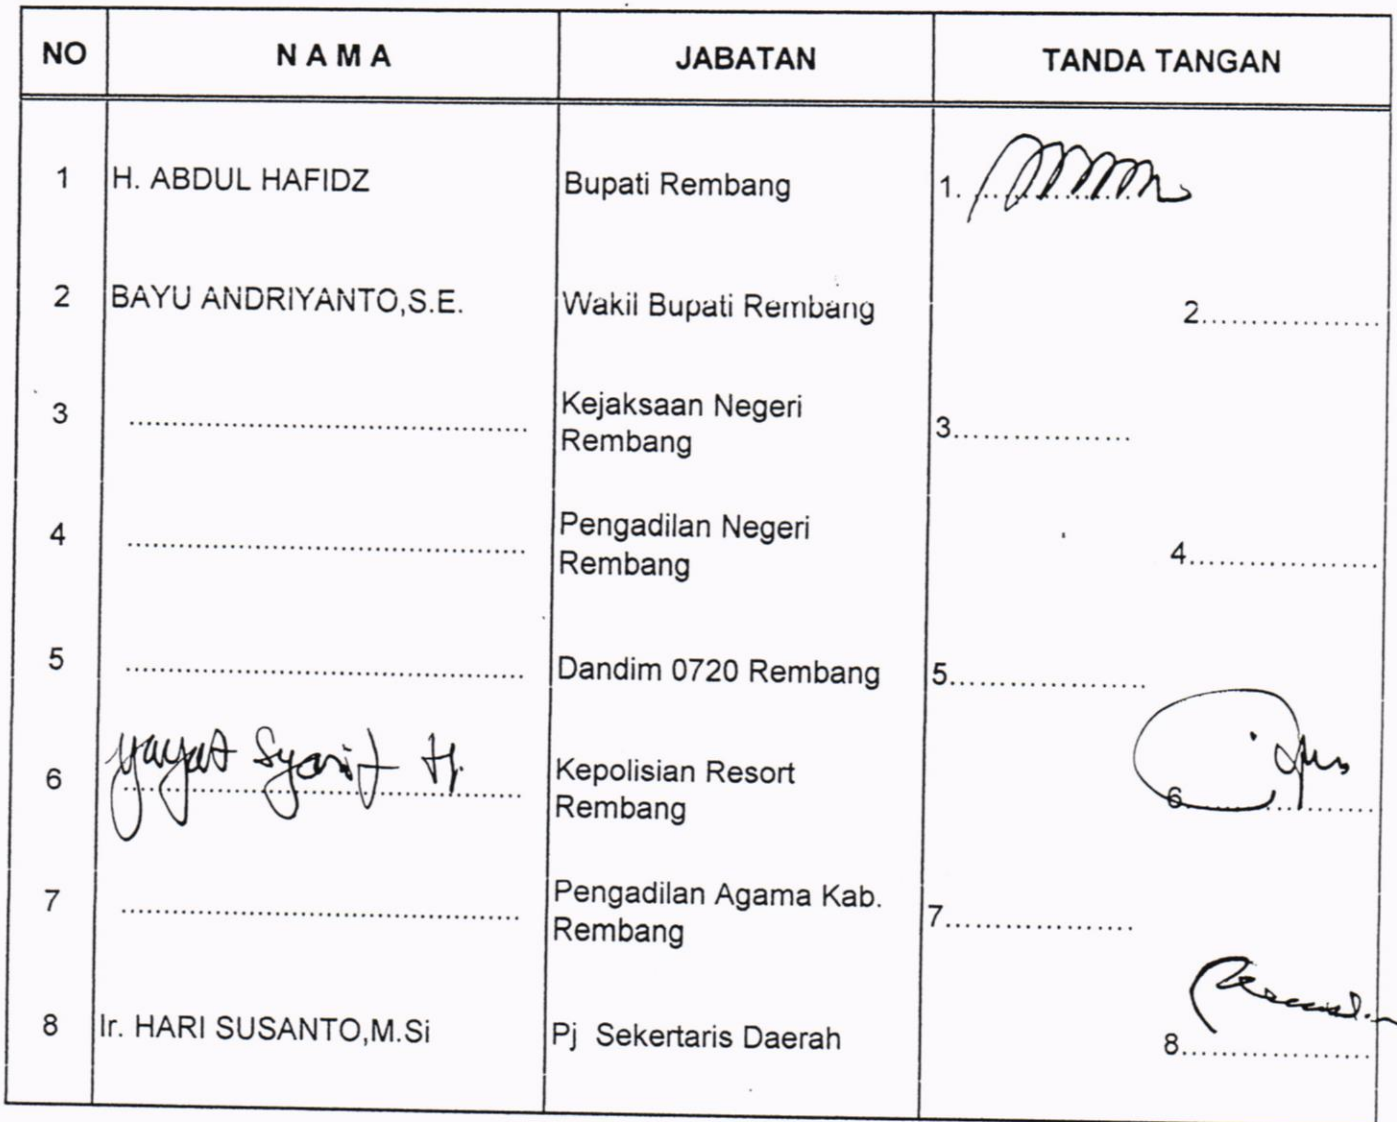 NO NAMA JABATAN TANDA TANGAN
1 H. ABDUL HAFIDZ Bupati Rembang 1. ....................
2 BAYU ANDRIYANTO,S.E. Wakil Bupati Rembang 2..................
3 ........................................ Kejaksaan Negeri 3..................
Rembang
4 ........................................ Pengadilan Negeri 4..................
Rembang
5 ........................................ Dandim 0720 Rembang 5....................
6 Yayat Syarif H. Kepolisian Resort 6....................
Rembang
7 ........................................ Pengadilan Agama Kab. 7..................
Rembang
8 Ir. HARI SUSANTO,M.Si Pj Sekertaris Daerah 8...................